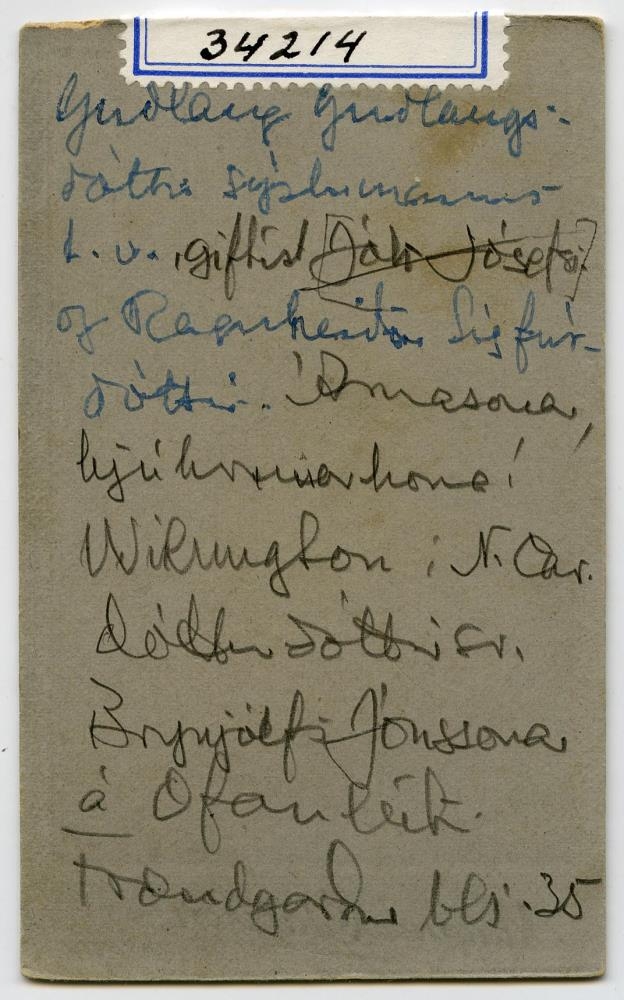 34214
Guðlaug Guðlaugs-
dóttir sýslumanns
t.v., giftist Jóh Jósefs.
og Ragnheiður Sigfús-
dóttir. Árnasona,
hjúkrunarkona í
Wilmington í N. Car.
dóttur dóttir sr.
Brynjólfs Jónssonar
á Ofanleiti.
Frændgarður bls. 35